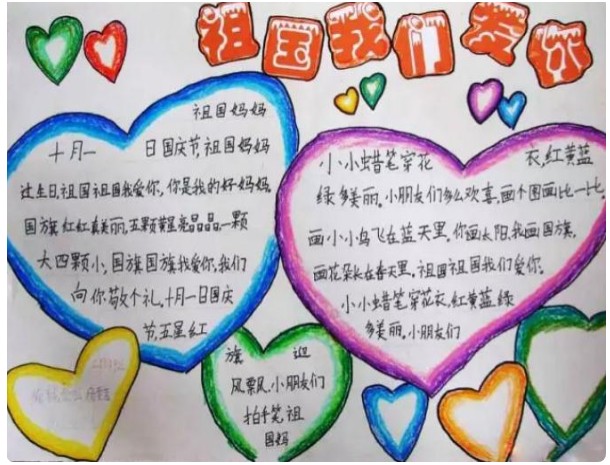 祖国我们爱你
祖国妈妈
十月一 日国庆节,祖国妈妈
过生日,祖国祖国我爱你,你是我的好妈妈,
国旗红红真美丽,五颗黄星亮晶晶,一颗
大四颗小,国旗国旗我爱你,我们
向你敬个礼,十月一日国庆
节,五星红
旗 迎
风飘,小朋友们
拍手笑祖
国妈
小小蜡笔穿花 衣,红黄蓝
绿多美丽,小朋友们多么欢喜,画个图画比一比,
画小小鸟飞在蓝天里,你画太阳,我画国旗,
画花朵长在春天里,祖国祖国我们爱你。
小小蜡笔穿花衣,红黄蓝绿
多美丽,小朋友们